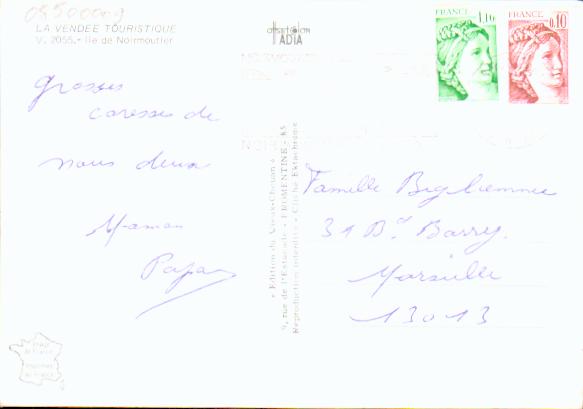 0550000g
LA VENDEE TOURISTIQUE
V. 2055.- Ile de Noirmoutier
ADIA
FRANCE
1,10
FRANCE
0,10
grosses
caresses de
nous deux
Maman
Papa
« Edition du Vieux-Chouan »
9, rue de l'Estacade - FROMENTINE - 85
Reproduction interdite - Cliché Ektachrome
Famille
31 Bd Barry.
Marseille
13013